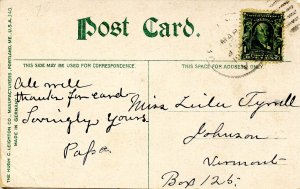 Post Card.
THIS SIDE MAY BE USED FOR CORRESPONDENCE.
THIS SPACE FOR ADDRESS ONLY
THE HUGH C. LEIGHTON CO., MANUFACTURERS, PORTLAND, ME., U.S.A.
MADE IN GERMANY
All well
thanks for card
Lovingly yours
Papa
Miss Tyrrell
Johnson
Vermont
Box 126.